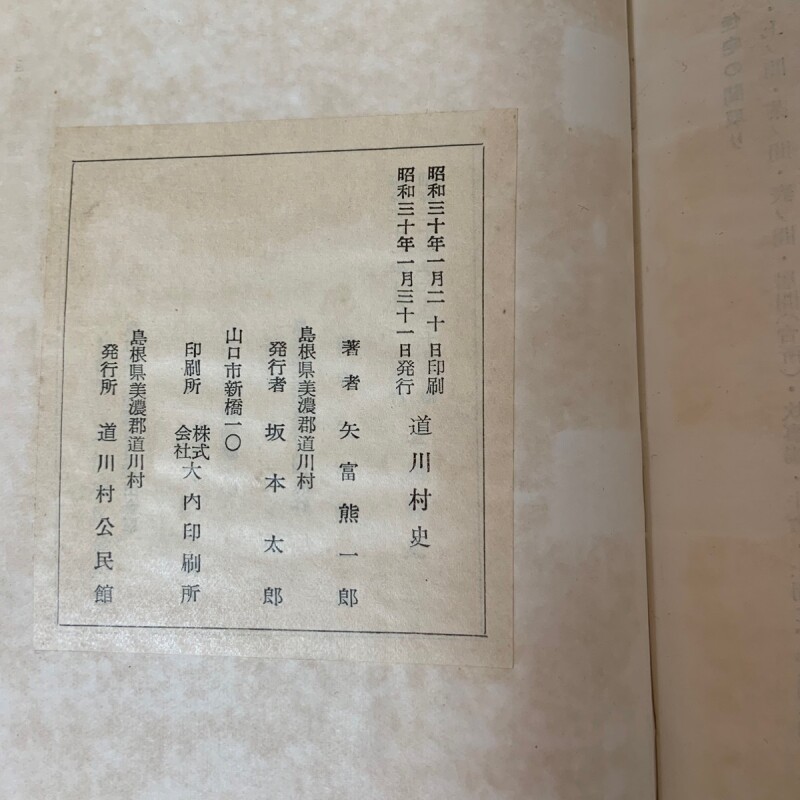 昭和三十年一月二十日印刷
昭和三十年一月三十一日発行
道川村史
著者 矢富熊一郎
島根県美濃郡道川村
発行者 坂本太郎
山口市新橋一〇
印刷所 株式会社大内印刷所
島根県美濃郡道川村
発行所 道川村公民館